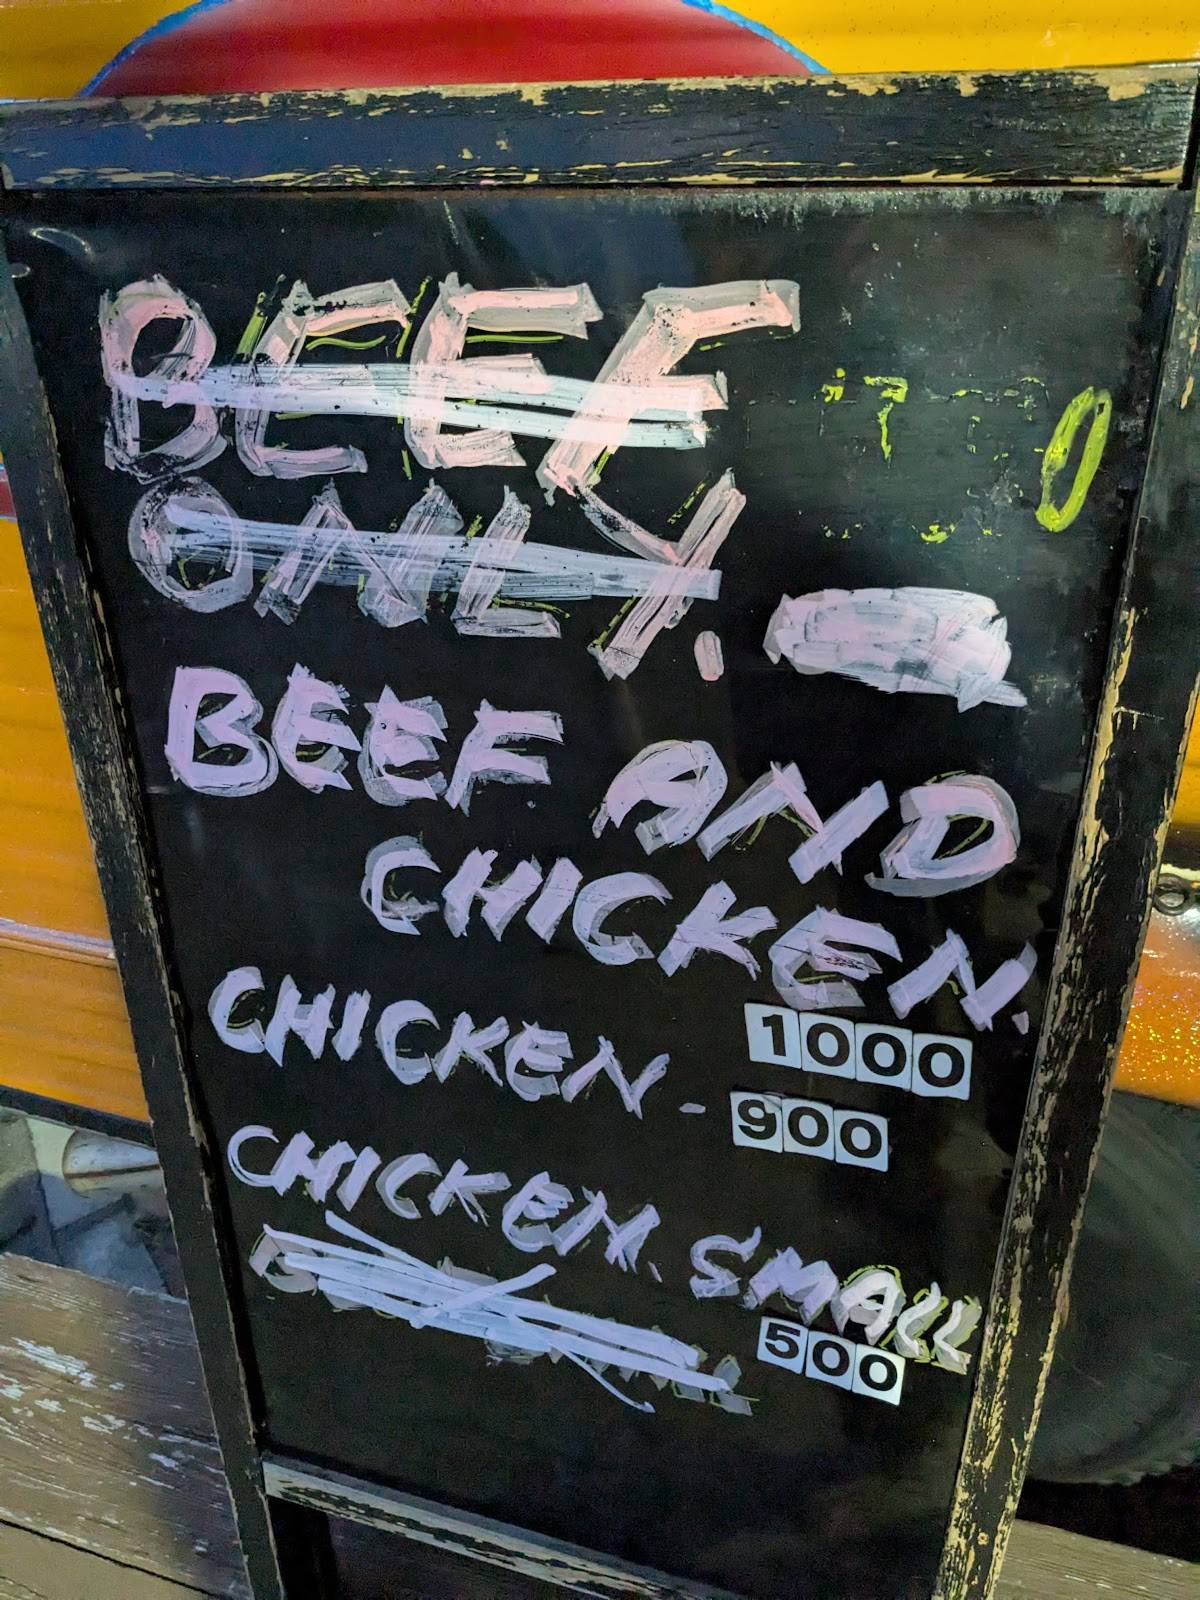 BEEF
ONLY.
BEEF AND
CHICKEN.
1000
CHICKEN - 900
CHICKEN. SMALL
500